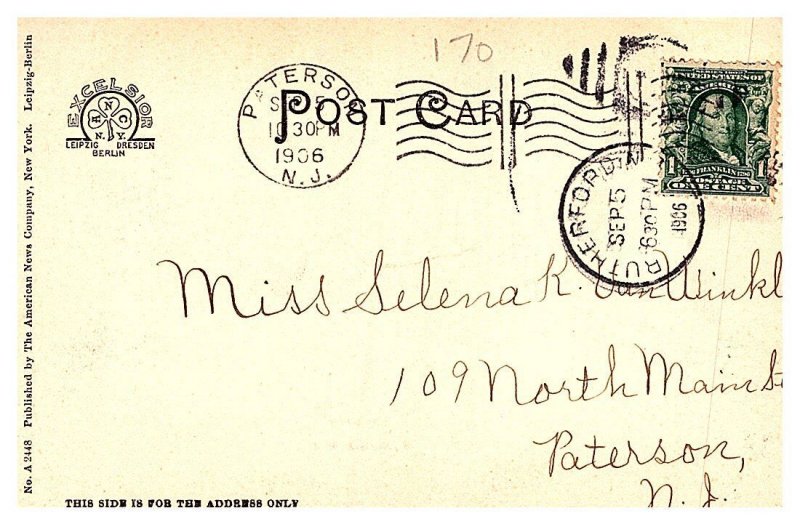 170
PATERSON
SEP 5
10 30 PM
1906
N. J.
POST CARD
EXCELSIOR
A N C
N.Y.
LEIPZIG DRESDEN
BERLIN
RUTHERFORD
SEP 5
630 PM
1906
1
FRANKLIN
POSTAGE
ONE CENT
Miss Selena K. Van Winkl
109 North Main St
Paterson,
N. J.
No. A 2448 Published by The American News Company, New York. Leipzig-Berlin
THIS SIDE IS FOR THE ADDRESS ONLY